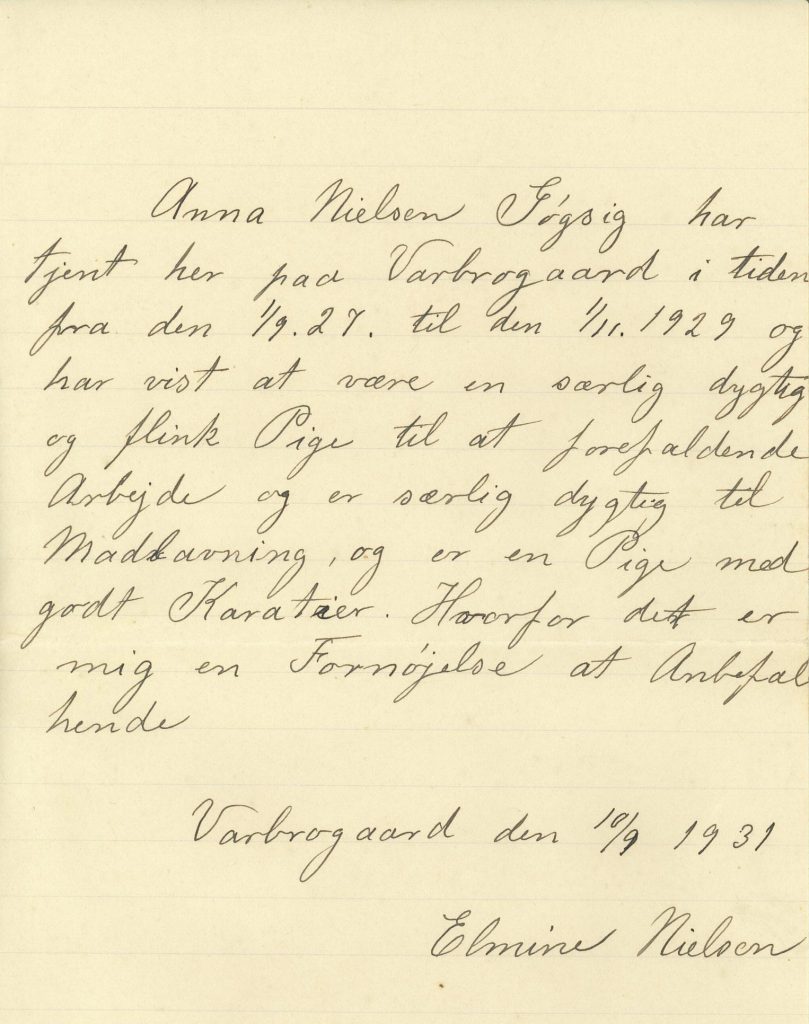 Anna Nielsen Gøgsig har
tjent her paa Varbrogaard i tiden
fra den 1/9. 27. til den 1/11. 1929 og
har vist at være en særlig dygtig
og flink Pige til at forefaldende
Arbejde og er særlig dygtig til
Madlavning, og er en Pige med
godt Karatier. Hvorfor det er
mig en Fornøjelse at Anbefal
hende
Varbrogaard den 10/9 1931
Elmine Nielsen